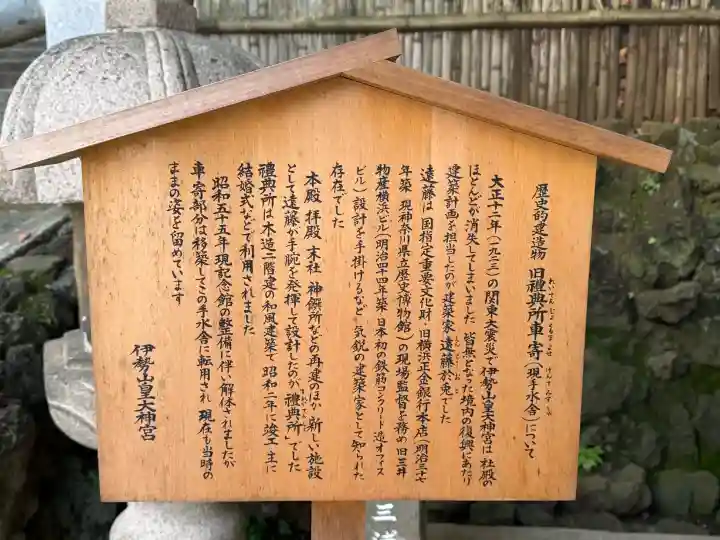 歴史的建造物 旧禮典所車寄(現手水舎)について
れいてんじょくるまよせ
げんてみずしゃ
大正十二年(一九二三)の関東大震災で伊勢山皇大神宮は 社殿の
ほとんどが消失してしまいました 皆無となった境内の復興にあたり
建築計画を担当したのが建築家 遠藤於菟でした
えんどうおと
遠藤は 国指定重要文化財・旧横浜正金銀行本店(明治三十七
年築 現神奈川県立歴史博物館)の現場監督を務め 旧三井
物産横浜ビル(明治四十四年築 日本初の鉄筋コンクリート造オフィス
ビル)設計を手掛けるなど 気鋭の建築家として知られた
存在でした
本殿 拝殿 末社 神饌所などの再建のほか 新しい施設
として遠藤が手腕を発揮して設計したのが「禮典所」でした
禮典所は 木造二階建の和風建築で 昭和二年に竣工 主に
結婚式などで利用されました
昭和五十五年現記念館の整備に伴い解体されましたが
車寄部分は移築してこの手水舎に転用され 現在も当時の
ままの姿を留めています
伊勢山皇大神宮
三